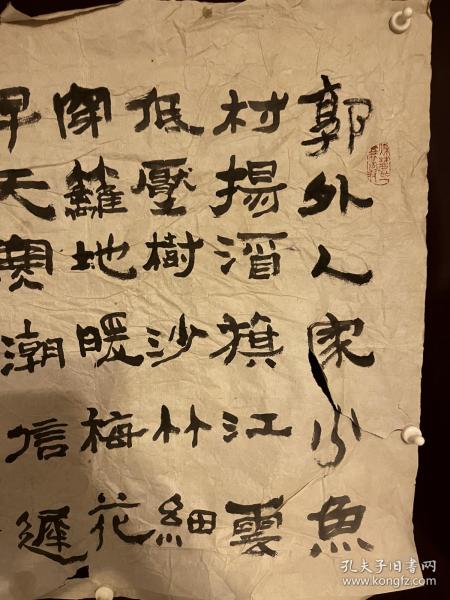 郭外人家少魚
村揚酒旗江雲
低壓樹沙竹細
穿籬地暖梅花
早天寒潮信遲
孔夫子旧书网
www.kongfz.com